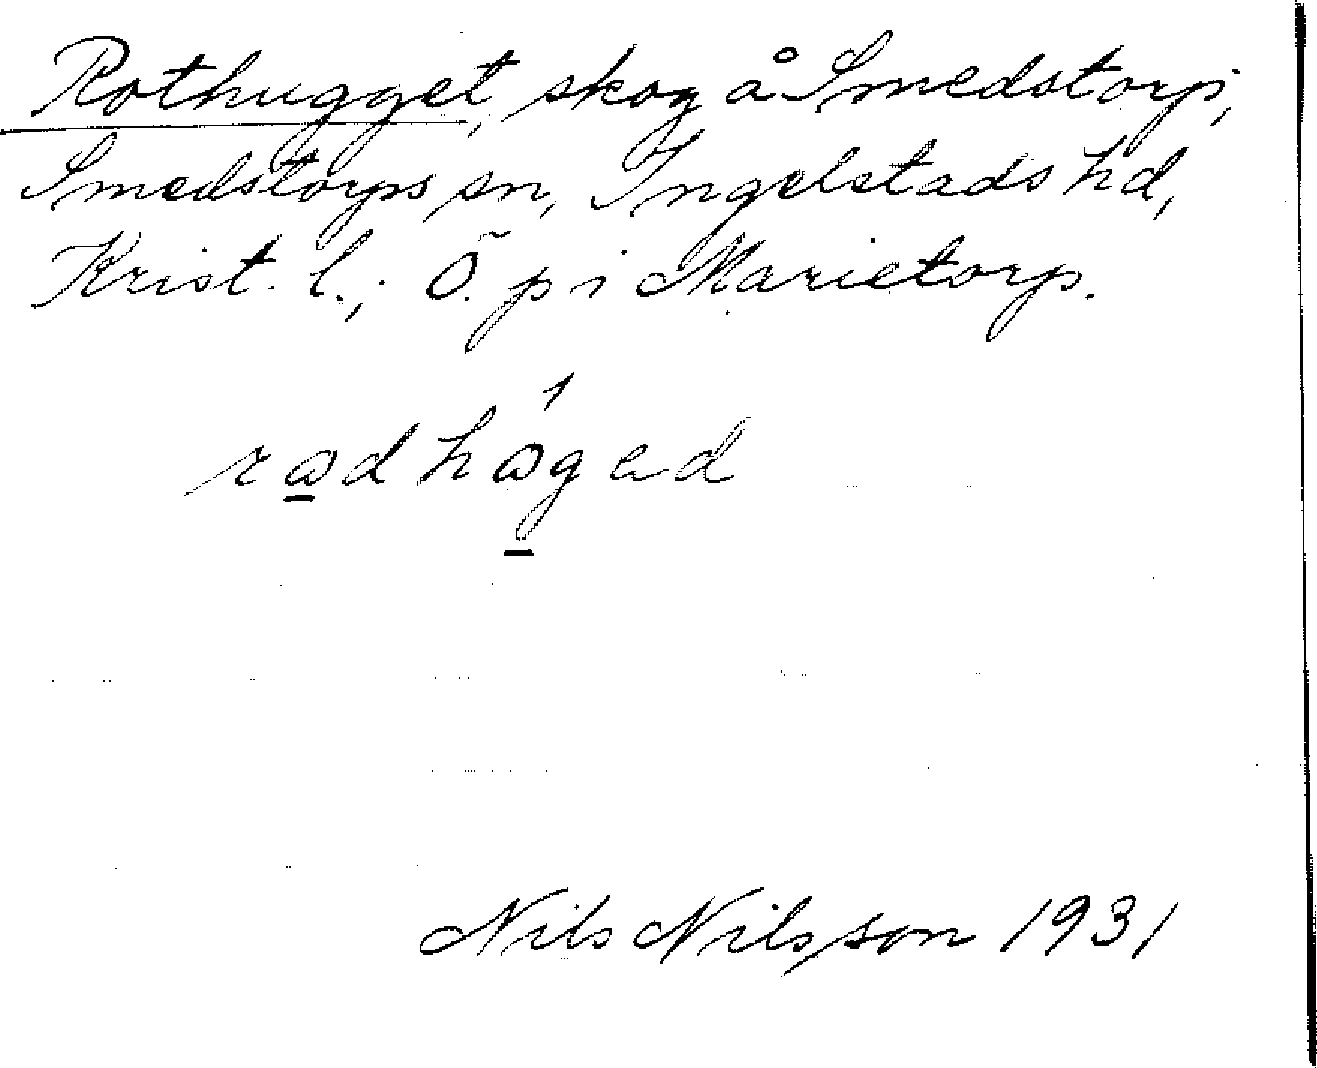 Rothugget, skog å Smedstorp,
Smedstorps sn, Ingelstads hd,
Krist. l.; Ö. p i Marietorp.
rødhøged
Nils Nilsson 1931